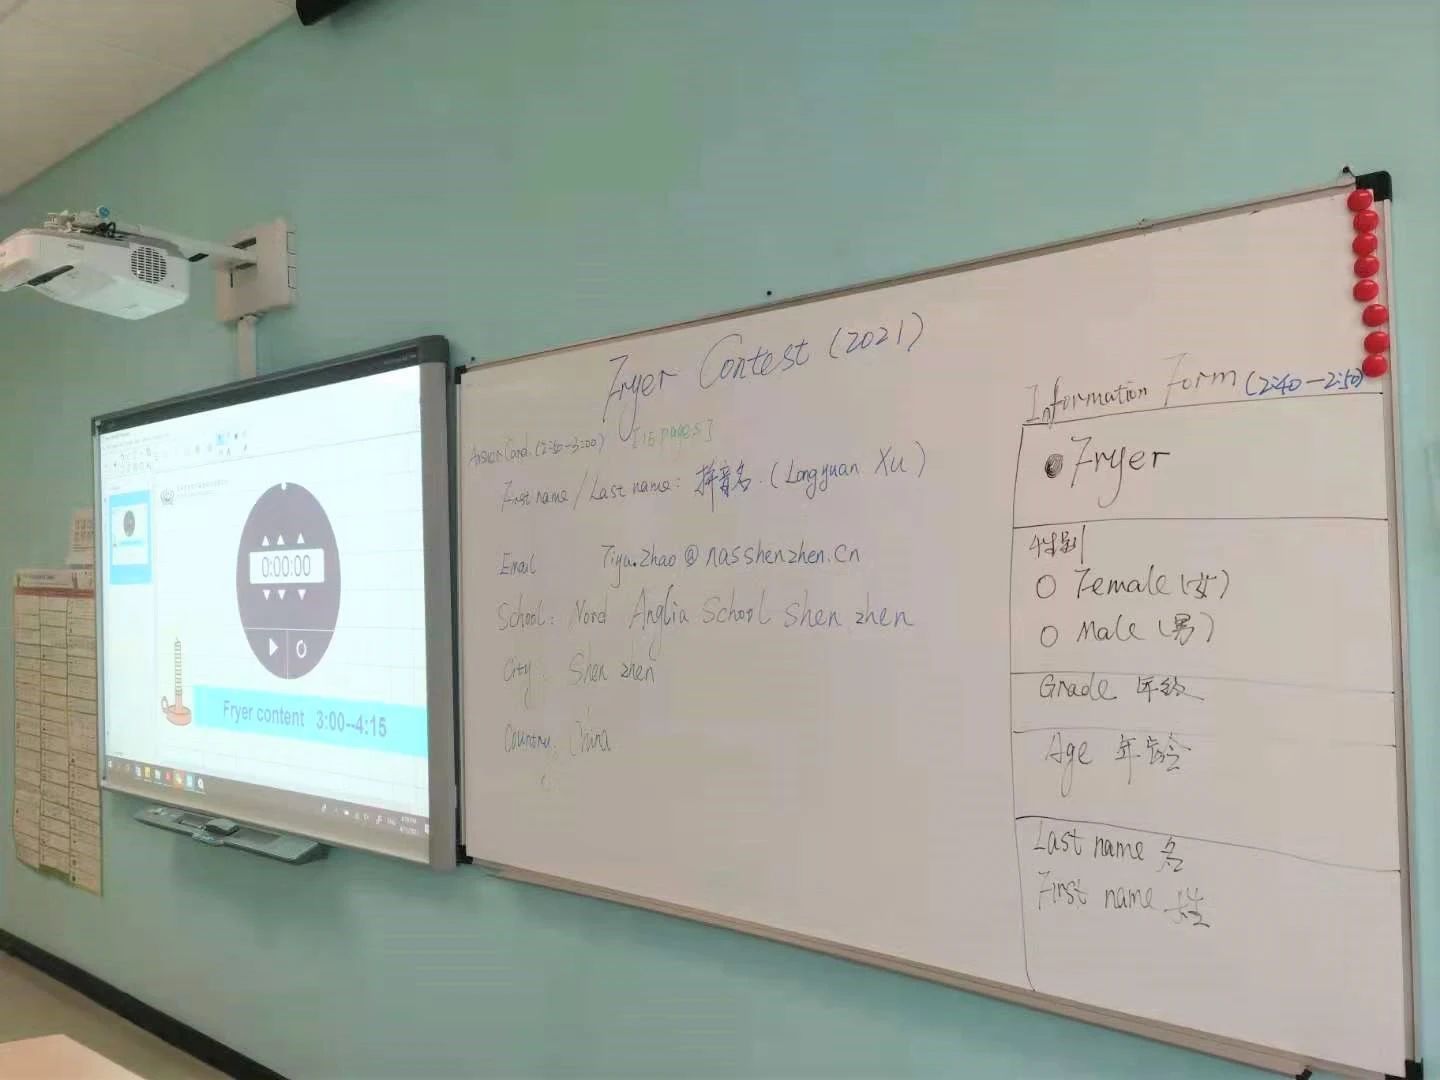 0:00:00
Fryer content 3:00--4:15
Fryer Contest (2021)
Answer Card (2:50-3:00) [15 pages]
First name / Last name: 拼音名. (Longyuan Xu)
Email Tiyu.zhao@nasshenzhen.cn
School: Nord Anglia School Shen zhen
City: Shen zhen
Country: China
Information Form (2:40-2:50)
Fryer
性别
Female (女)
Male (男)
Grade 年级
Age 年龄
Last name 名
First name 姓